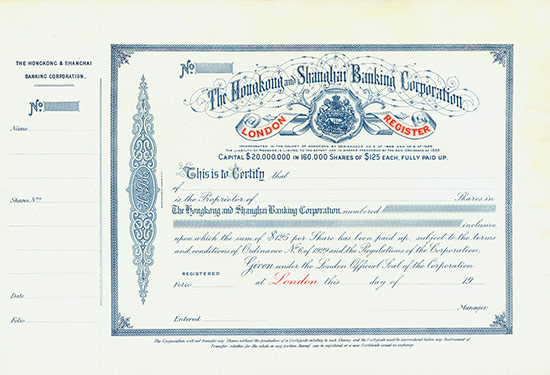 THE HONGKONG & SHANGHAI
BANKING CORPORATION.
No
Name
Shares Nos
Date
Folio
No
The Hongkong and Shanghai Banking Corporation.
LONDON REGISTER
INCORPORATED IN THE COLONY OF HONGKONG BY ORDINANCES
THE LIABILITY OF MEMBERS IS LIMITED TO THE EXTENT AND IN MANNER PRESCRIBED BY THE SAID ORDINANCE OF 1929.
CAPITAL $20,000,000 IN 160,000 SHARES OF $125 EACH, FULLY PAID UP.
This is to Certify that
of
is the Proprietor of Shares in
The Hongkong and Shanghai Banking Corporation, numbered
inclusive,
upon which the sum of $125 per Share has been paid up, subject to the terms
and conditions of Ordinance No. 6 of 1929 and the Regulations of the Corporation.
Given under the London Official Seal of the Corporation
REGISTERED
Folio at London this day of 19
Manager.
Entered
The Corporation will not transfer any Shares without the production of a Certificate relating to such Shares, and the Certificate must be surrendered before any Instrument of
Transfer whether for the whole or any portion thereof can be registered or a new Certificate issued in exchange.